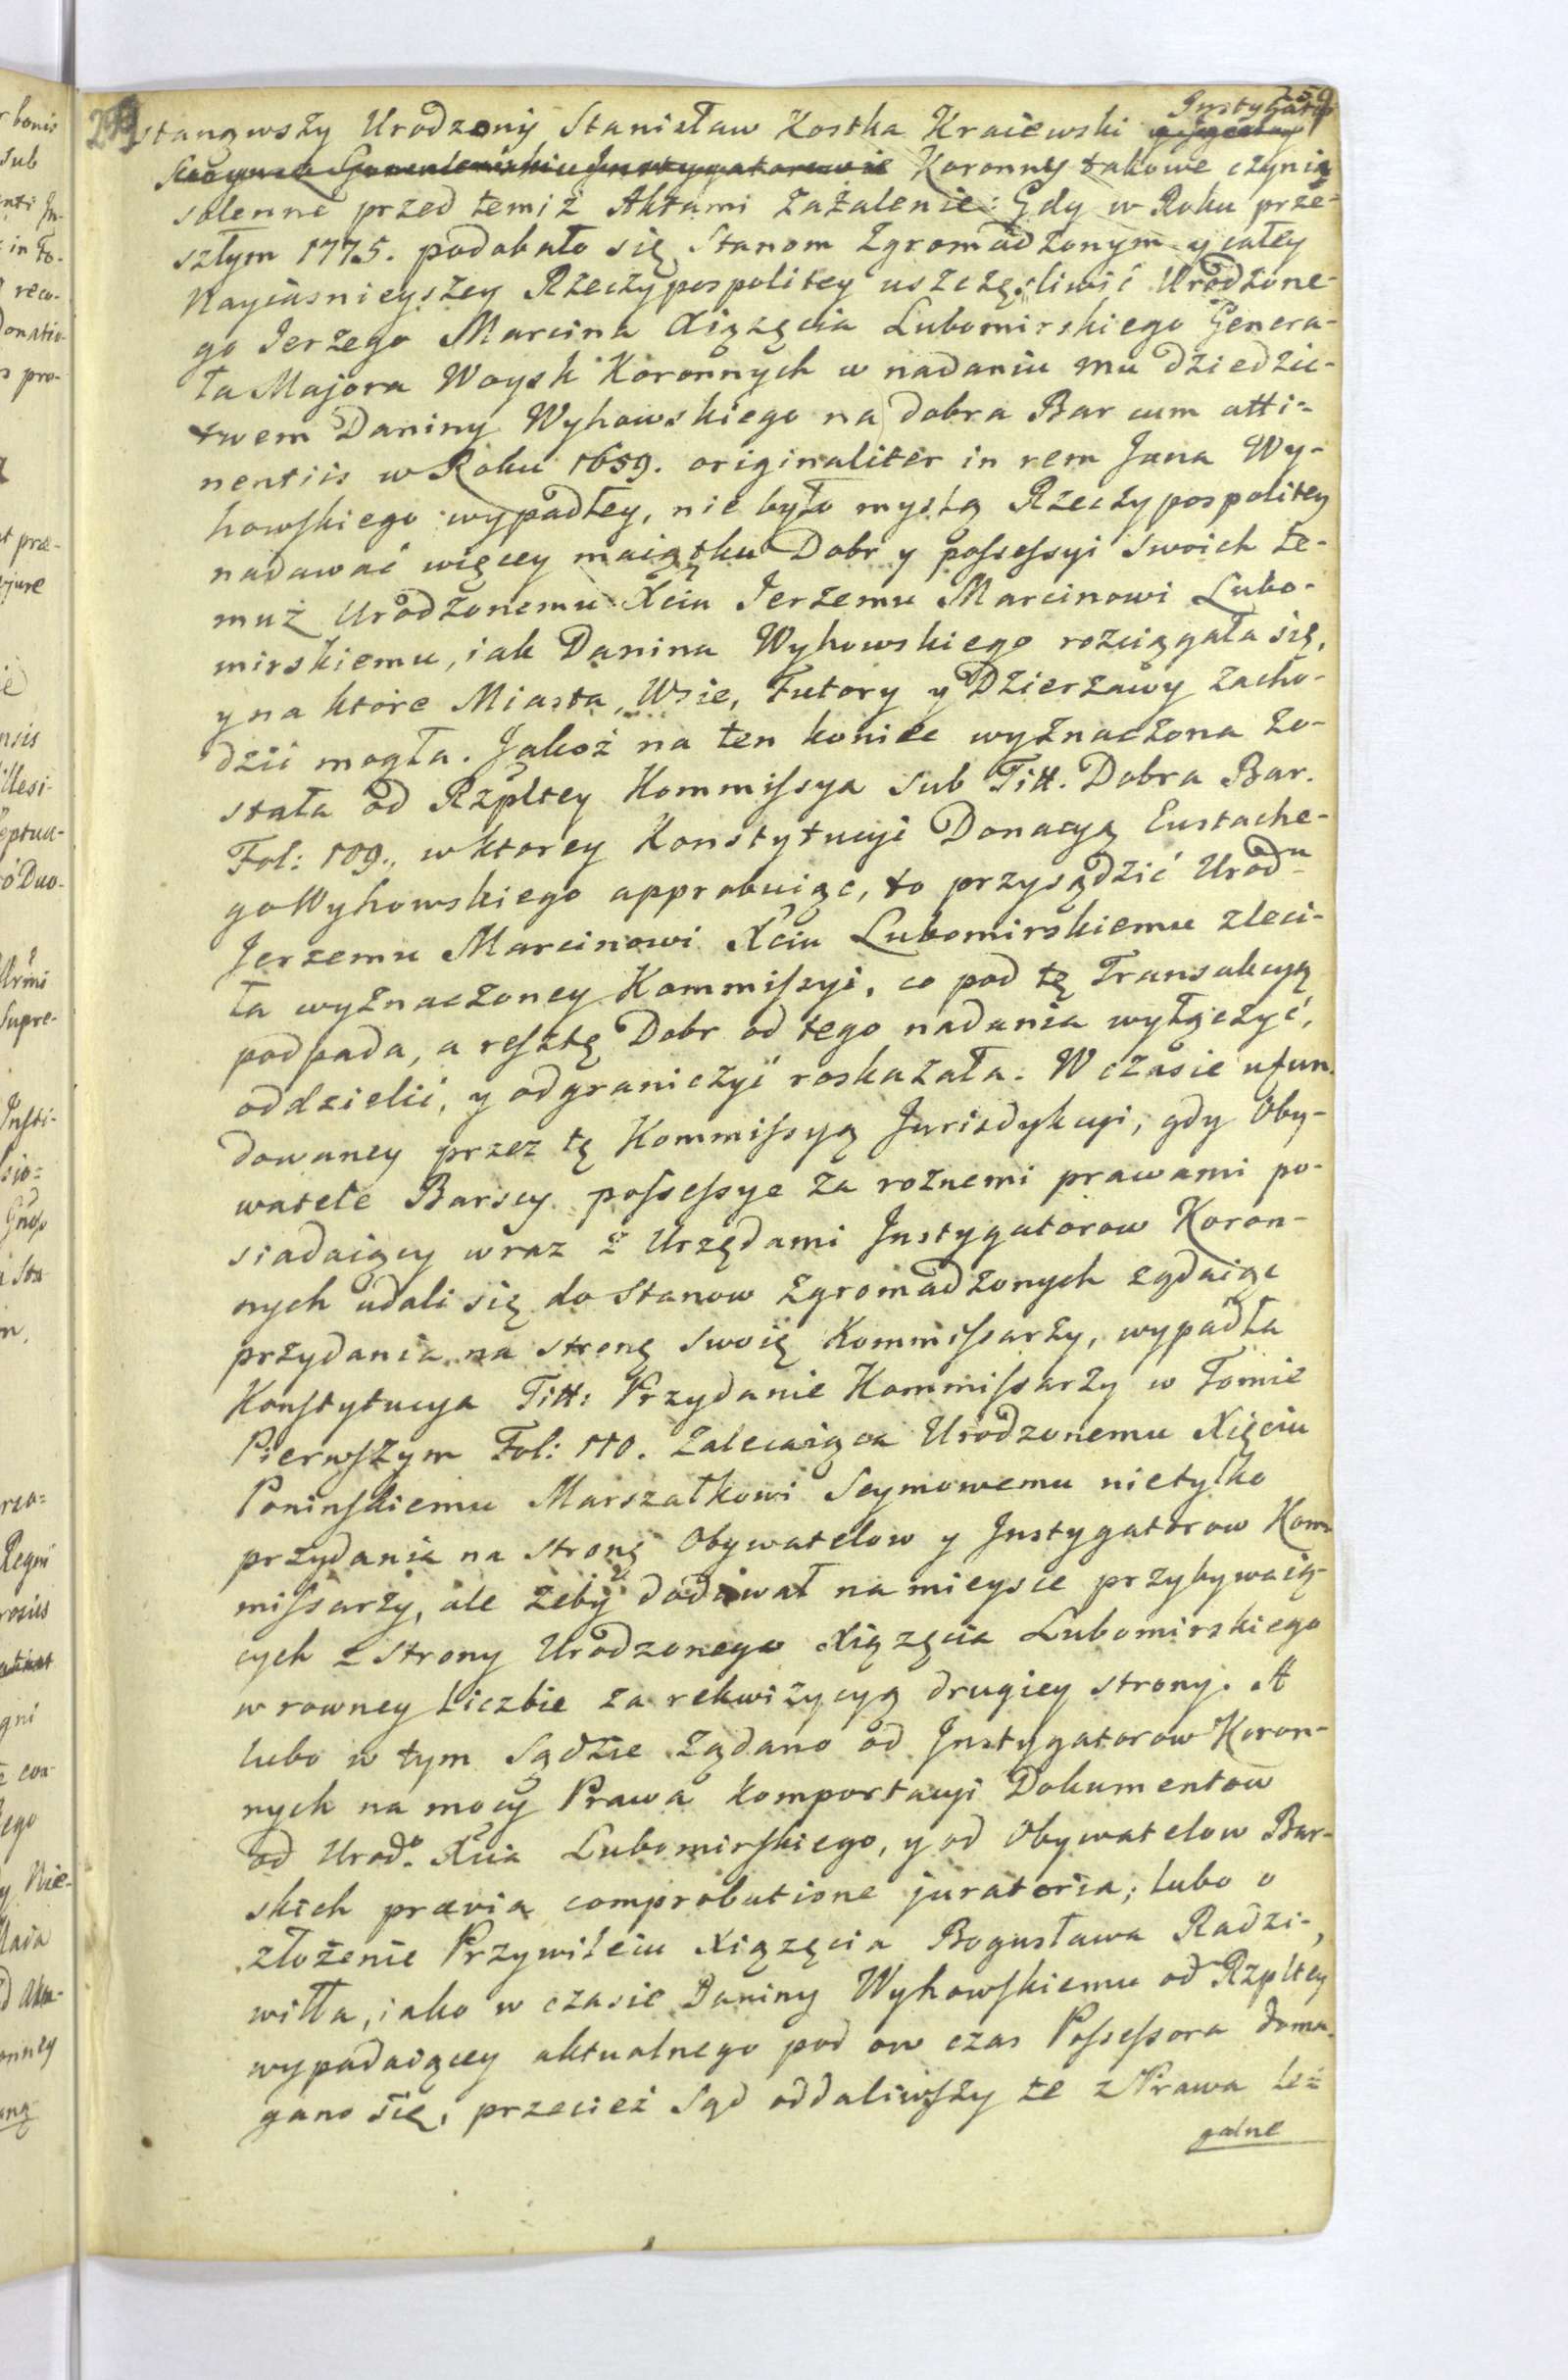 259
stanąwszy Urodzony Stanisław Kostka Kraiewski Instygator
Koronny takowe czynią
solenne przed temiż Aktami Zażalenie: Gdy w Roku prze-
szłym 1775. podobało się Stanom Zgromadzonym y całey
Nayiasnieyszey Rzeczypospolitey uszczęsliwić Urodzone-
go Jerzego Marcina Xiązęcia Lubomirskiego Genera-
ła Majora Woysk Koronnych w nadaniu mu dziedzic-
twem Daniny Wyhowskiego na dobra Bar cum atti-
nentiis w Roku 1659. originaliter in rem Jana Wy-
howskiego wypadłey, nie było myslą Rzeczypospolitey
nadawać więcey maiątku Dobr y possessyi swoich te-
muż Urodzonemu Xciu Jerzemu Marcinowi Lubo-
mirskiemu, iak Danina Wyhowskiego rozciągała się,
y na ktore Miasta, Wsie, Futory y Dzierzawy zacho-
dzić mogła. Jakoż na ten koniec wyznaczona zo-
stała od Rzpltey Kommissya sub Titt. Dobra Bar.
Fol: 109., w ktorey Konstytucyi Donacyą Eustache-
go Wyhowskiego approbuiąc, to przysądzić Urodu
Jerzemu Marcinowi Xciu Lubomirskiemu zleci-
ła wyznaczoney Kommissyi, co pod tę Transakcyą
podpada, a resztę Dobr od tego nadania wyłączyć,
oddzielić, y odgraniczyć roskazała. W czasie ufun-
dowaney przez tę Kommissyą Jurisdykcyi, gdy Oby-
watele Barscy possessye za roznemi prawami po-
siadaiący wraz z Urzędami Instygatorow Koron-
nych udali się do Stanow Zgromadzonych ządaiąc
przydania na stronę swoię Kommissarzy, wypadła
Konstytucya Titt: Przydanie Kommissarzy w Tomie
Pierwszym Fol: 110. Zalecaiąca Urodzonemu Xięciu
Poninskiemu Marszałkowi Seymowemu nietylko
przydania na stronę Obywatelow y Instygatorow Kom-
missarzy, ale żeby dodawał na mieysce przybywaią-
cych z strony Urodzonego Xiązęcia Lubomirskiego
w rowney Liczbie za rekwizycyą drugiey strony. A
lubo w tym Sądzie żądano od Instygatorow Koron-
nych na mocy Prawa komportacyi Dokumentow
od Urodo. Xcia Lubomirskiego, y od Obywatelow Bar-
skich prævia comprobatione juratoria; lubo o
złożenie Przywileiu Xiązęcia Bogusława Radzi-
wiłła, iako w czasie Daniny Wyhowskiemu od Rzpltey
wypadaiącey aktualnego pod ow czas Possessora doma-
gano się, przecież Sąd oddaliwszy te z Prawa le-
galne